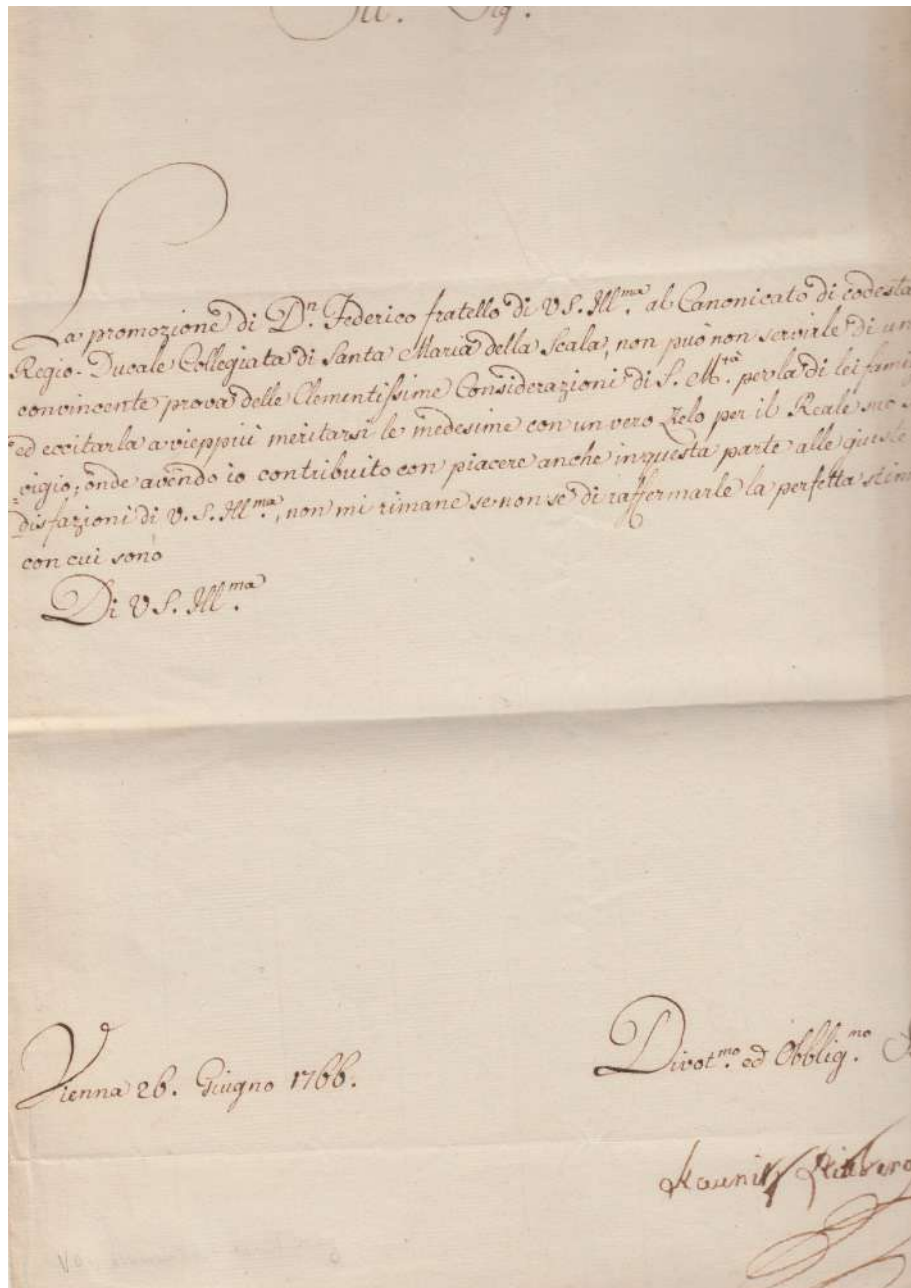 Ill. Sig.
La promozione di D.n Federico fratello di V S. Ill.ma al Canonicato di codesta
Regio-Ducale Collegiata di Santa Maria della Scala, non può non servirle di un
convincente prova delle Clementissime Considerazioni di S. M.tà per la di lei famig
ed eccitarla a vieppiù meritarsi le medesime con un vero Zelo per il Reale suo
=vigio; onde avendo io contribuito con piacere anche in questa parte alle giuste
disfazioni di V. S. Ill.ma, non mi rimane se non se di raffermarle la perfetta stim
con cui sono
Di V S. Ill.ma
Vienna 26. Giugno 1766.
Divot.mo ed Obblig.mo
Kaunitz Rittberg